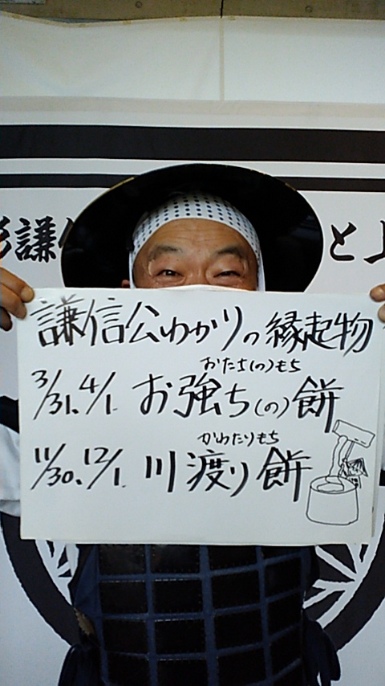 謙
と上
謙信公ゆかりの縁起物
おたち(の)もち
3/31.4/1. お強ち(の)餅
かわたりもち
11/30.12/1. 川渡り餅